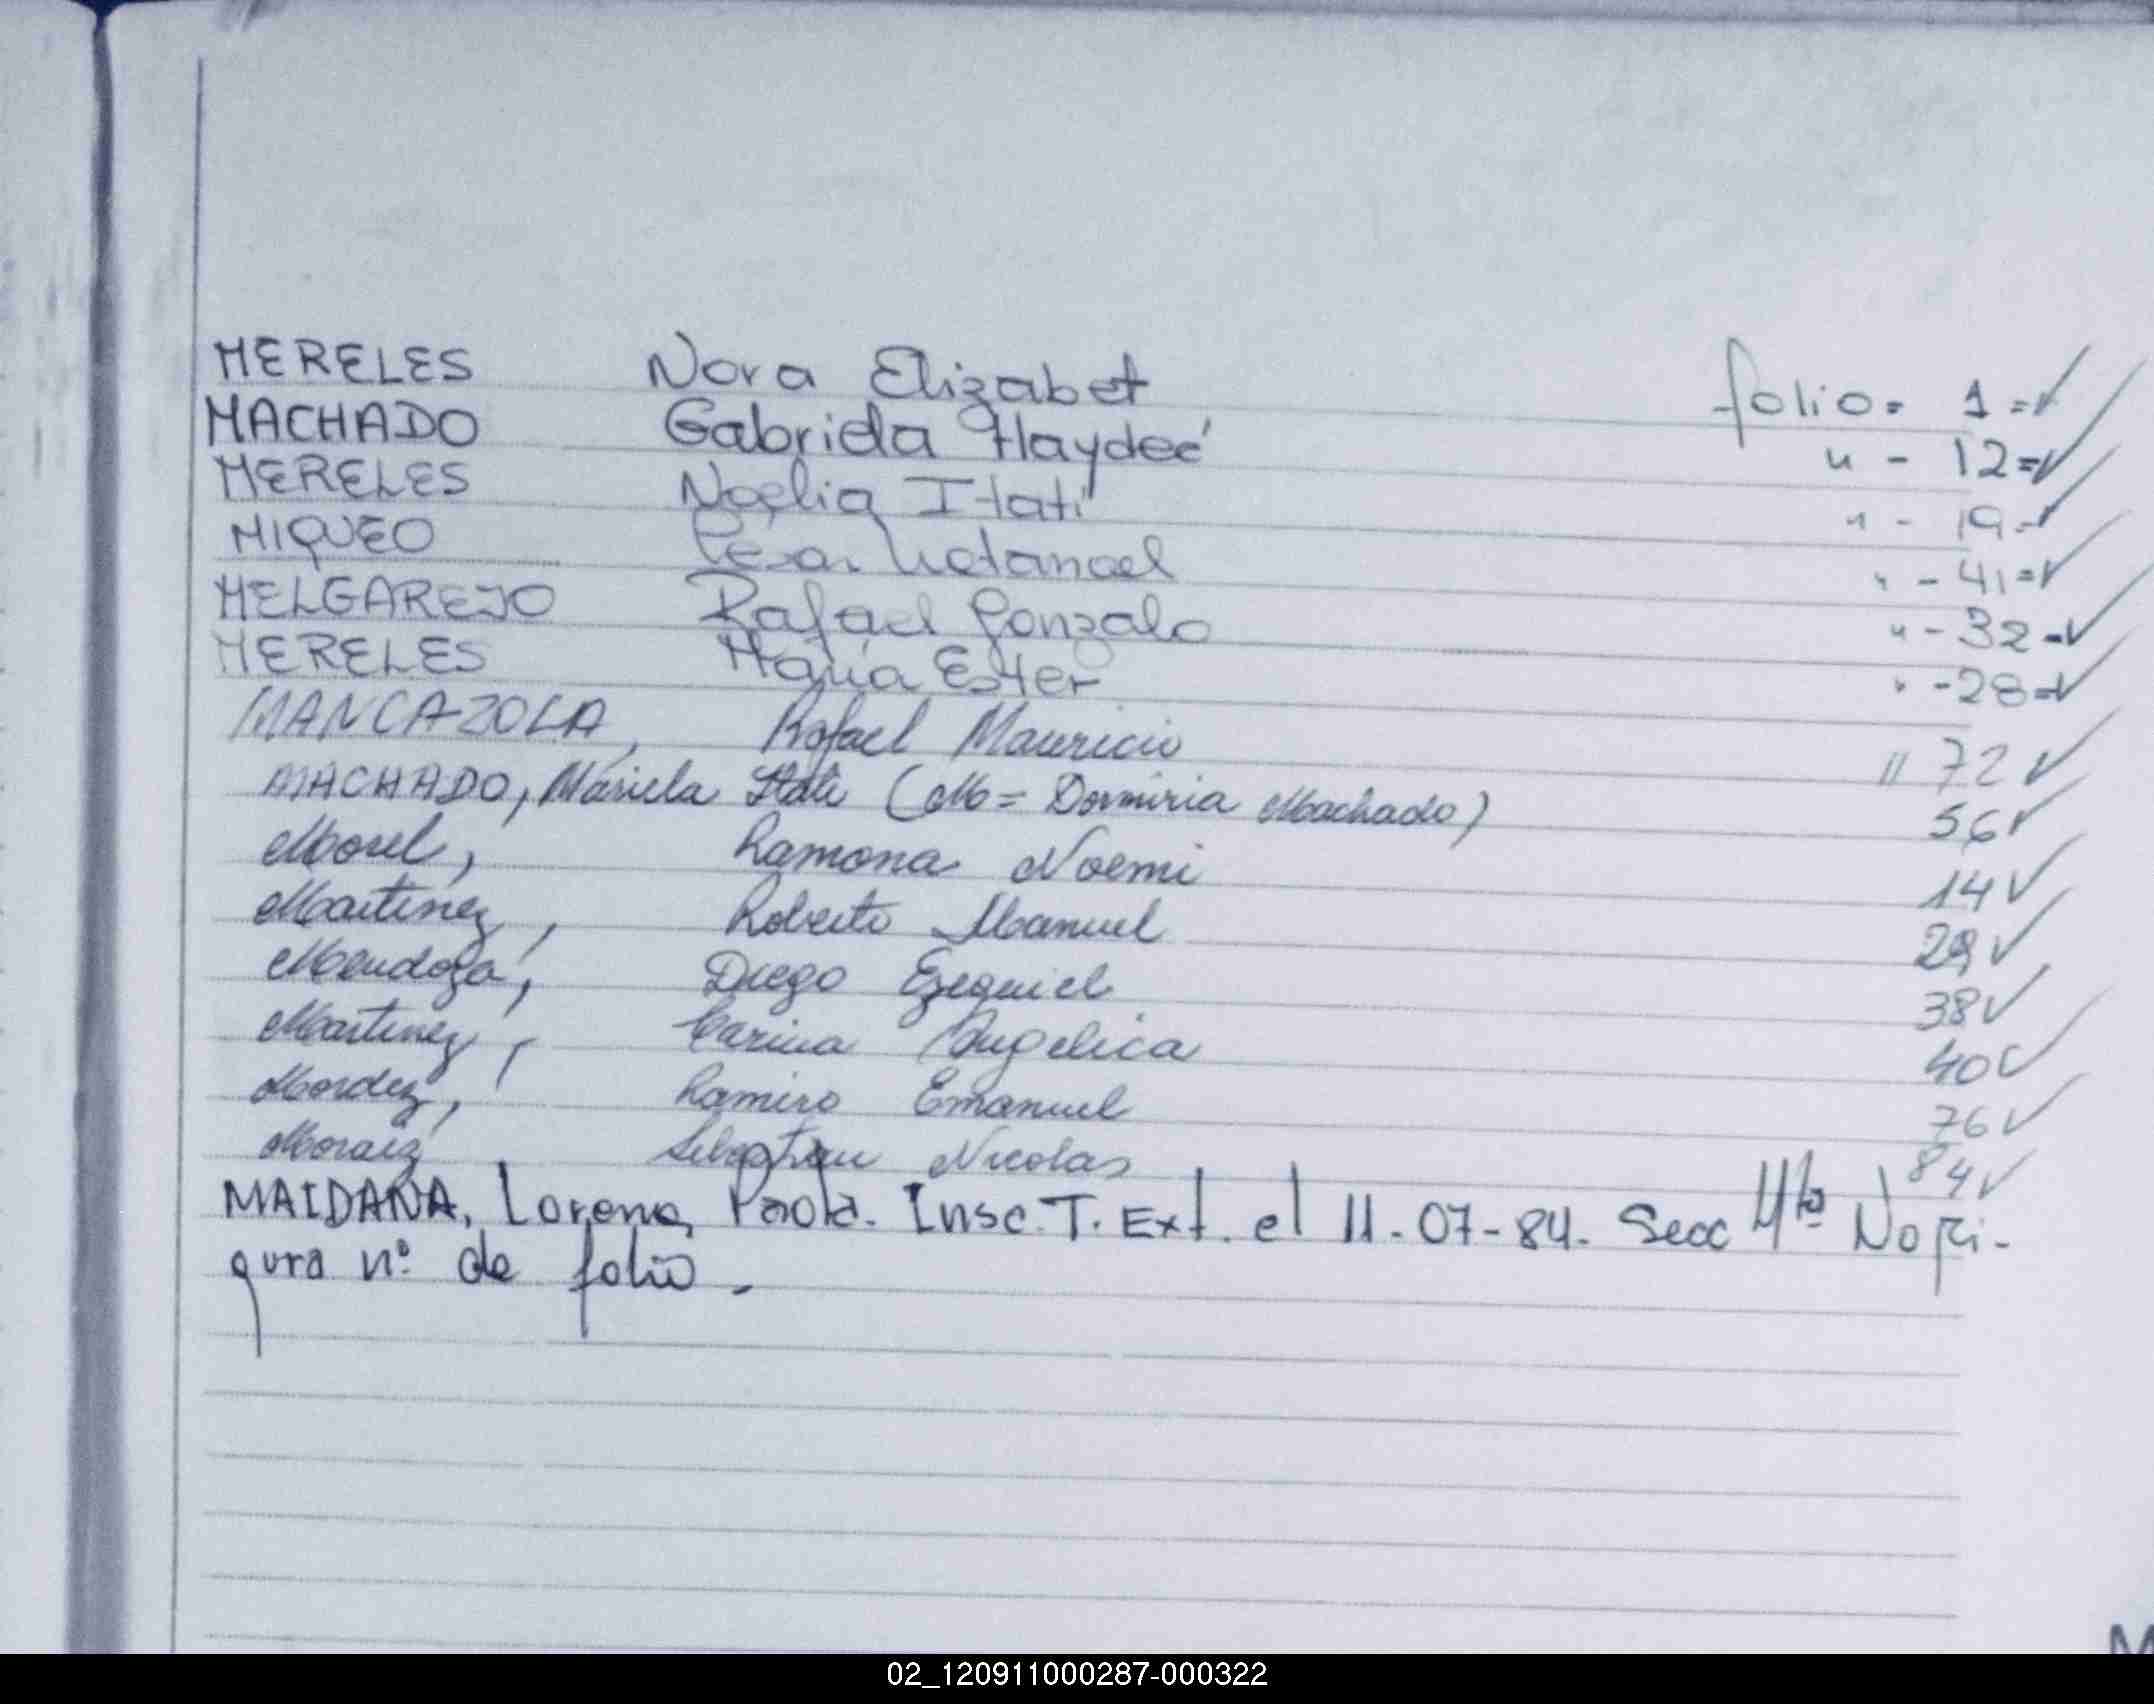 MERELES Nora Elizabet folio = 1 = ✓
MACHADO Gabriela Haydeé " - 12 = ✓
MERELES Noelia Itatí " - 19 - ✓
MIQUEO Cesar Natanael " - 41 = ✓
MELGAREJO Rafael Gonzalo " - 32 - ✓
MERELES María Ester " - 28 = ✓
MANCAZOLA, Rafael Mauricio " 72 ✓
MACHADO, Mariela Itati (M = Dormiria Machado) 56 ✓
Morel, Ramona Noemi 14 ✓
Martinez, Roberto Manuel 29 ✓
Mendoza, Diego Ezequiel 38 ✓
Martinez, Carina Angelica 40 ✓
Ramiro Emanuel 76 ✓
Sebastian Nicolas 84 ✓
MAIDANA, Lorena Paola. Insc. T. Ext. el 11-07-84. Secc 4ta No fi-
gura nº de folio.
02_120911000287-000322